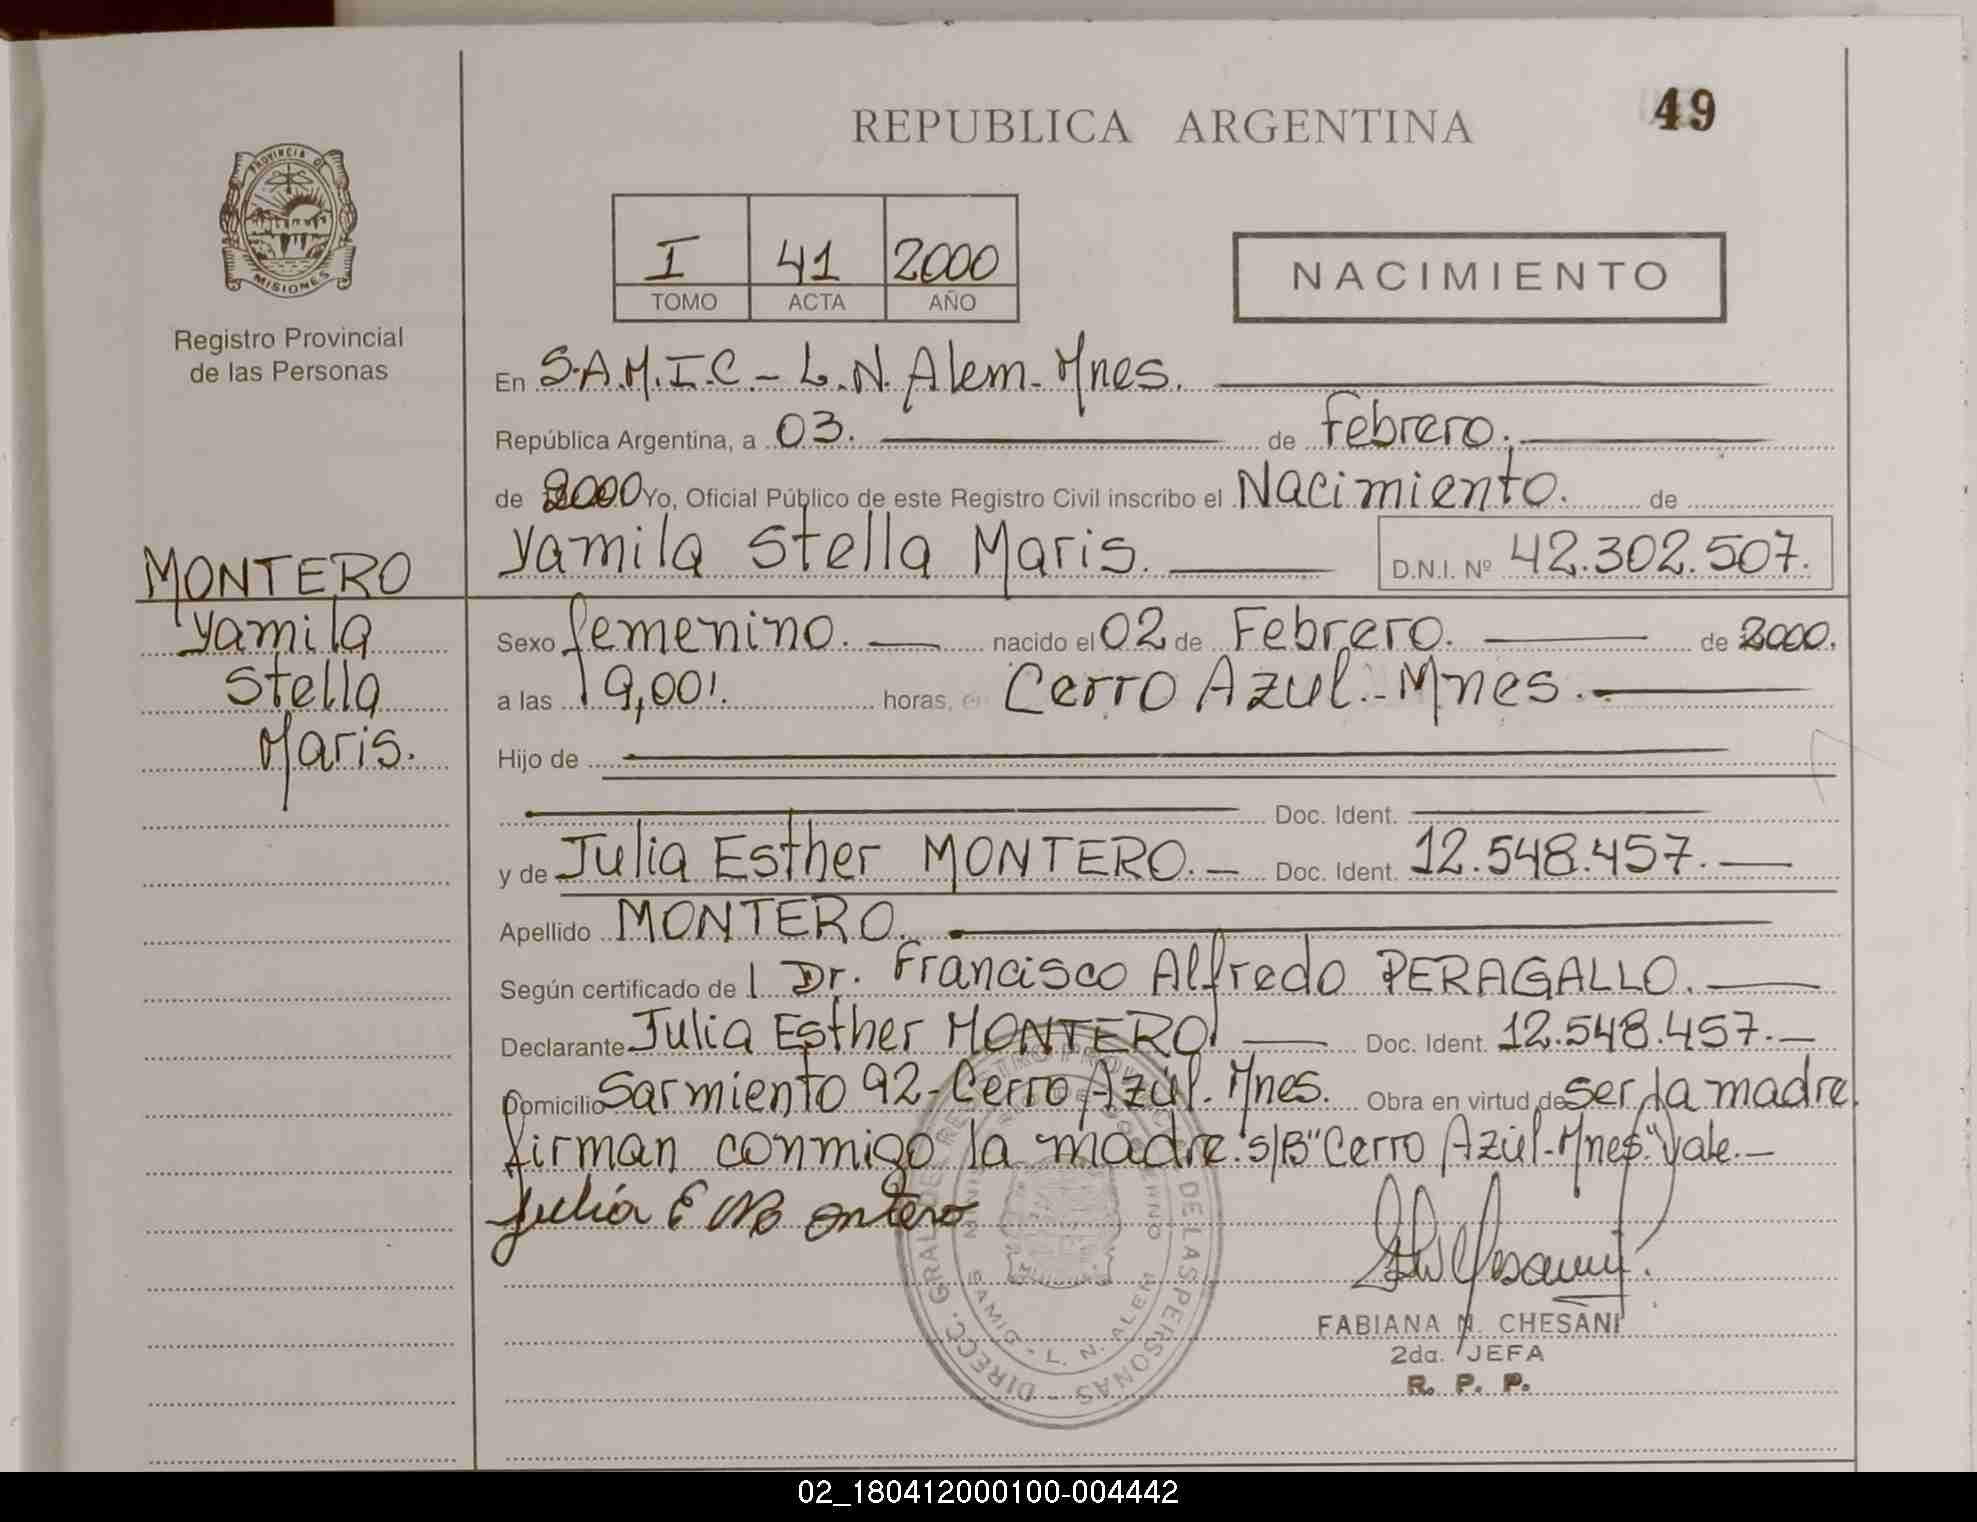 49
REPUBLICA ARGENTINA
PROVINCIA DE
MISIONES
Registro Provincial
de las Personas
I 41 2000
TOMO ACTA AÑO
NACIMIENTO
En S.A.M.I.C - L.N. Alem - Mnes.
República Argentina, a 03. de febrero.
de 2000 Yo, Oficial Público de este Registro Civil inscribo el Nacimiento. de
Yamila Stella Maris. D.N.I. Nº 42.302.507.
MONTERO
Yamila
Stella
Maris.
Sexo femenino. nacido el 02 de Febrero. de 2000.
a las 19,00'. horas, en Cerro Azul.-Mnes.
Hijo de
Doc. Ident.
y de Julia Esther MONTERO. - Doc. Ident. 12.548.457. -
Apellido MONTERO.
Según certificado de l Dr. Francisco Alfredo PERAGALLO.
Declarante Julia Esther MONTERO Doc. Ident. 12.548.457. -
Domicilio Sarmiento 92 - Cerro Azul. Mnes. Obra en virtud de ser la madre.
firman conmigo la madre. s/B "Cerro Azul-Mnes." Vale. -
Julia E Montero
DIRECC. GRAL. DE REGISTRO PROV. DE LAS PERSONAS
SAMIC - L. N. ALEM
FABIANA N. CHESANI
2da. JEFA
R. P. P.
02_180412000100-004442